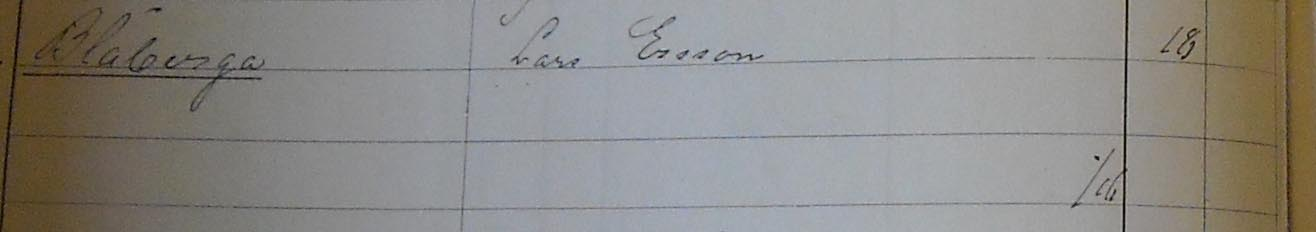 Blåberga Lars Ersson 18